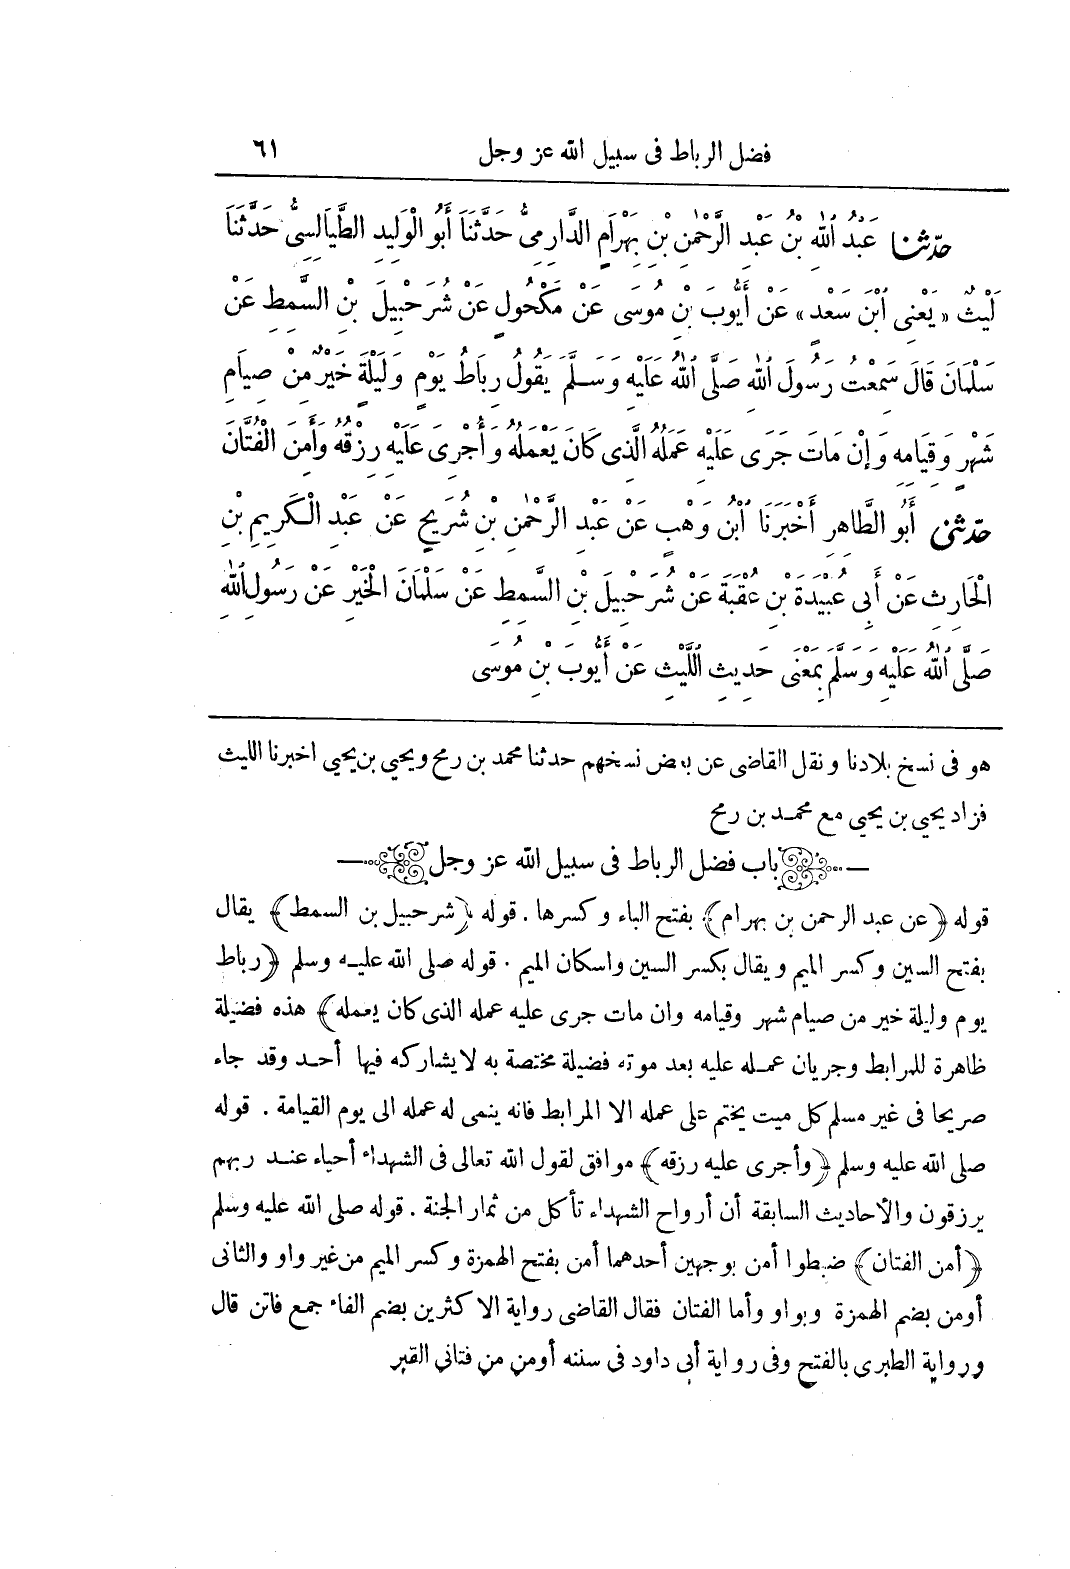 فضل الرباط فى سبيل الله عز وجل ٦١
حدّثنا عَبْدُ اللهِ بْنُ عَبْدِ الرَّحْمٰنِ بْنِ بَهْرَامٍ الدَّارِمِىُّ حَدَّثَنَا أَبُو الْوَلِيدِ الطَّيَالِسِىُّ حَدَّثَنَا
لَيْثٌ «يَعْنِى ابْنَ سَعْدٍ» عَنْ أَيُّوبَ بْنِ مُوسَى عَنْ مَكْحُولٍ عَنْ شُرَحْبِيلَ بْنِ السَّمِطِ عَنْ
سَلْمَانَ قَالَ سَمِعْتُ رَسُولَ اللهِ صَلَّى اللهُ عَلَيْهِ وَسَلَّمَ يَقُولُ رِبَاطُ يَوْمٍ وَلَيْلَةٍ خَيْرٌ مِنْ صِيَامِ
شَهْرٍ وَقِيَامِهِ وَإِنْ مَاتَ جَرَى عَلَيْهِ عَمَلُهُ الَّذِى كَانَ يَعْمَلُهُ وَأُجْرِىَ عَلَيْهِ رِزْقُهُ وَأَمِنَ الْفُتَّانَ
حدّثنى أَبُو الطَّاهِرِ أَخْبَرَنَا ابْنُ وَهْبٍ عَنْ عَبْدِ الرَّحْمٰنِ بْنِ شُرَيْحٍ عَنْ عَبْدِ الْكَرِيمِ بْنِ
الْحَارِثِ عَنْ أَبِى عُبَيْدَةَ بْنِ عُقْبَةَ عَنْ شُرَحْبِيلَ بْنِ السَّمِطِ عَنْ سَلْمَانَ الْخَيْرِ عَنْ رَسُولِ اللهِ
صَلَّى اللهُ عَلَيْهِ وَسَلَّمَ بِمَعْنَى حَدِيثِ اللَّيْثِ عَنْ أَيُّوبَ بْنِ مُوسَى
هو فى نسخ بلادنا ونقل القاضى عن بعض نسخهم حدثنا محمد بن رمح ويحيى بن يحيى اخبرنا الليث
فزاد يحيى بن يحيى مع محمد بن رمح
باب فضل الرباط فى سبيل الله عز وجل
قوله ﴿عن عبد الرحمن بن بهرام﴾ بفتح الباء وكسرها . قوله ﴿شرحبيل بن السمط﴾ يقال
بفتح السين وكسر الميم ويقال بكسر السين واسكان الميم . قوله صلى الله عليه وسلم ﴿رباط
يوم وليلة خير من صيام شهر وقيامه وان مات جرى عليه عمله الذى كان يعمله﴾ هذه فضيلة
ظاهرة للمرابط وجريان عمله عليه بعد موته فضيلة مختصة به لا يشاركه فيها أحد وقد جاء
صريحا فى غير مسلم كل ميت يختم على عمله الا المرابط فانه ينمى له عمله الى يوم القيامة . قوله
صلى الله عليه وسلم ﴿وأجرى عليه رزقه﴾ موافق لقول الله تعالى فى الشهداء أحياء عند ربهم
يرزقون والأحاديث السابقة أن أرواح الشهداء تأكل من ثمار الجنة . قوله صلى الله عليه وسلم
﴿أمن الفتان﴾ ضبطوا أمن بوجهين أحدهما أمن بفتح الهمزة وكسر الميم من غير واو والثانى
أومن بضم الهمزة وبواو وأما الفتان فقال القاضى رواية الاكثرين بضم الفاء جمع فاتن قال
ورواية الطبرى بالفتح وفى رواية أبى داود فى سننه أومن من فتانى القبر